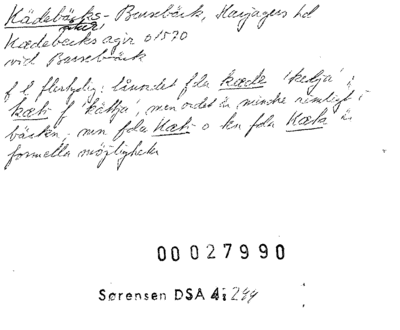 Kädebäcks- Barsebäck, Harjagers hd
Kædebecks agir o 1570
vid Barsebäck
f l flertydig: lånordet fda kæde 'kedja';
kæti f 'kättja', men ordet är mindre rimligt i
bäckn; mn fda Kæti o kn fda Kæta är
formella möjligheter
00027990
Sørensen DSA 4: 244